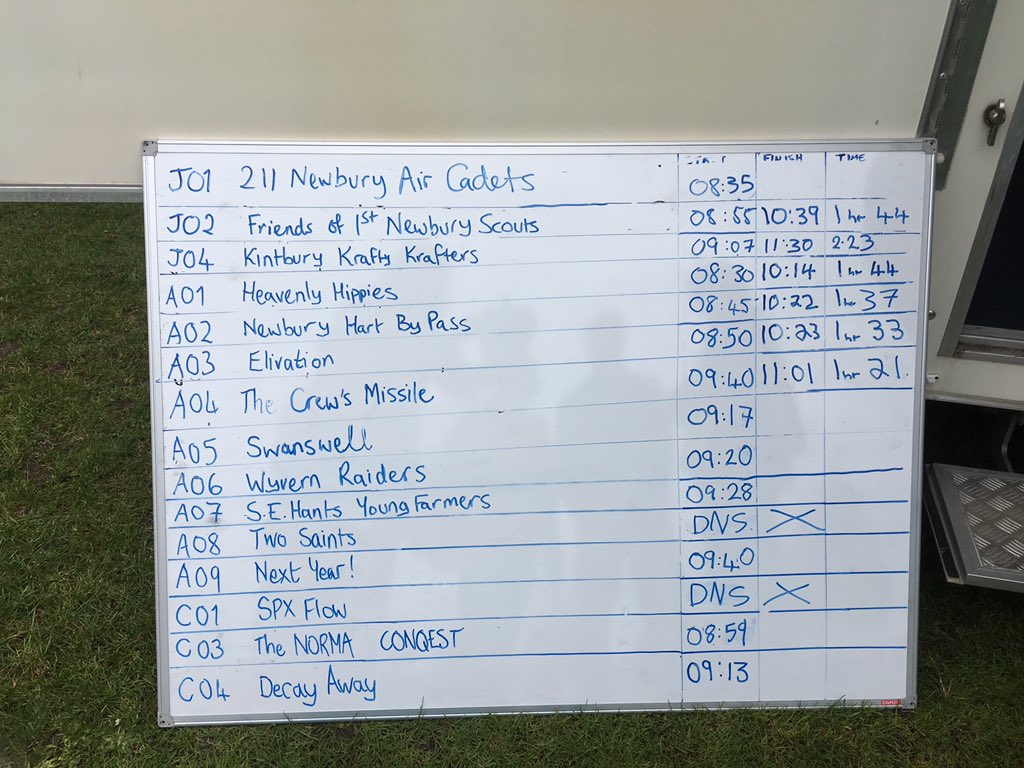 FINISH TIME
J01 211 Newbury Air Cadets 08:35
J02 Friends of 1st Newbury Scouts 08:55 10:39 1hr 44
J04 Kintbury Krafty Krafters 09:07 11:30 2.23
A01 Heavenly Hippies 08:30 10:14 1hr 44
A02 Newbury Hart By Pass 08:45 10:22 1hr 37
A03 Elivation 08:50 10:23 1hr 33
A04 The Crew's Missile 09:40 11:01 1hr 21.
A05 Swanswell 09:17
A06 Wyvern Raiders 09:20
A07 S.E.Hants Young Farmers 09:28
A08 Two Saints DNS.
A09 Next Year! 09:40
C01 SPX Flow DNS
C03 The NORMA CONQEST 08:59
C04 Decay Away 09:13